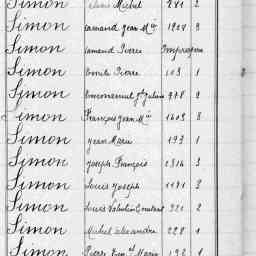 Simon Michel 281 2
Simon Armand Jean Mie 1908 3
Simon Armand Pierre
Simon Emile Pierre 103 1
Simon Emmanuel Julien 978 2
Simon François Jean Mie 1403 3
Simon Jean Marie 193 1
Simon Joseph François 1314 3
Simon Louis Joseph 1171 3
Simon Louis Valentin Constant 321 2
Simon Michel Alexandre 228 1
Simon Pierre Marie 192 1